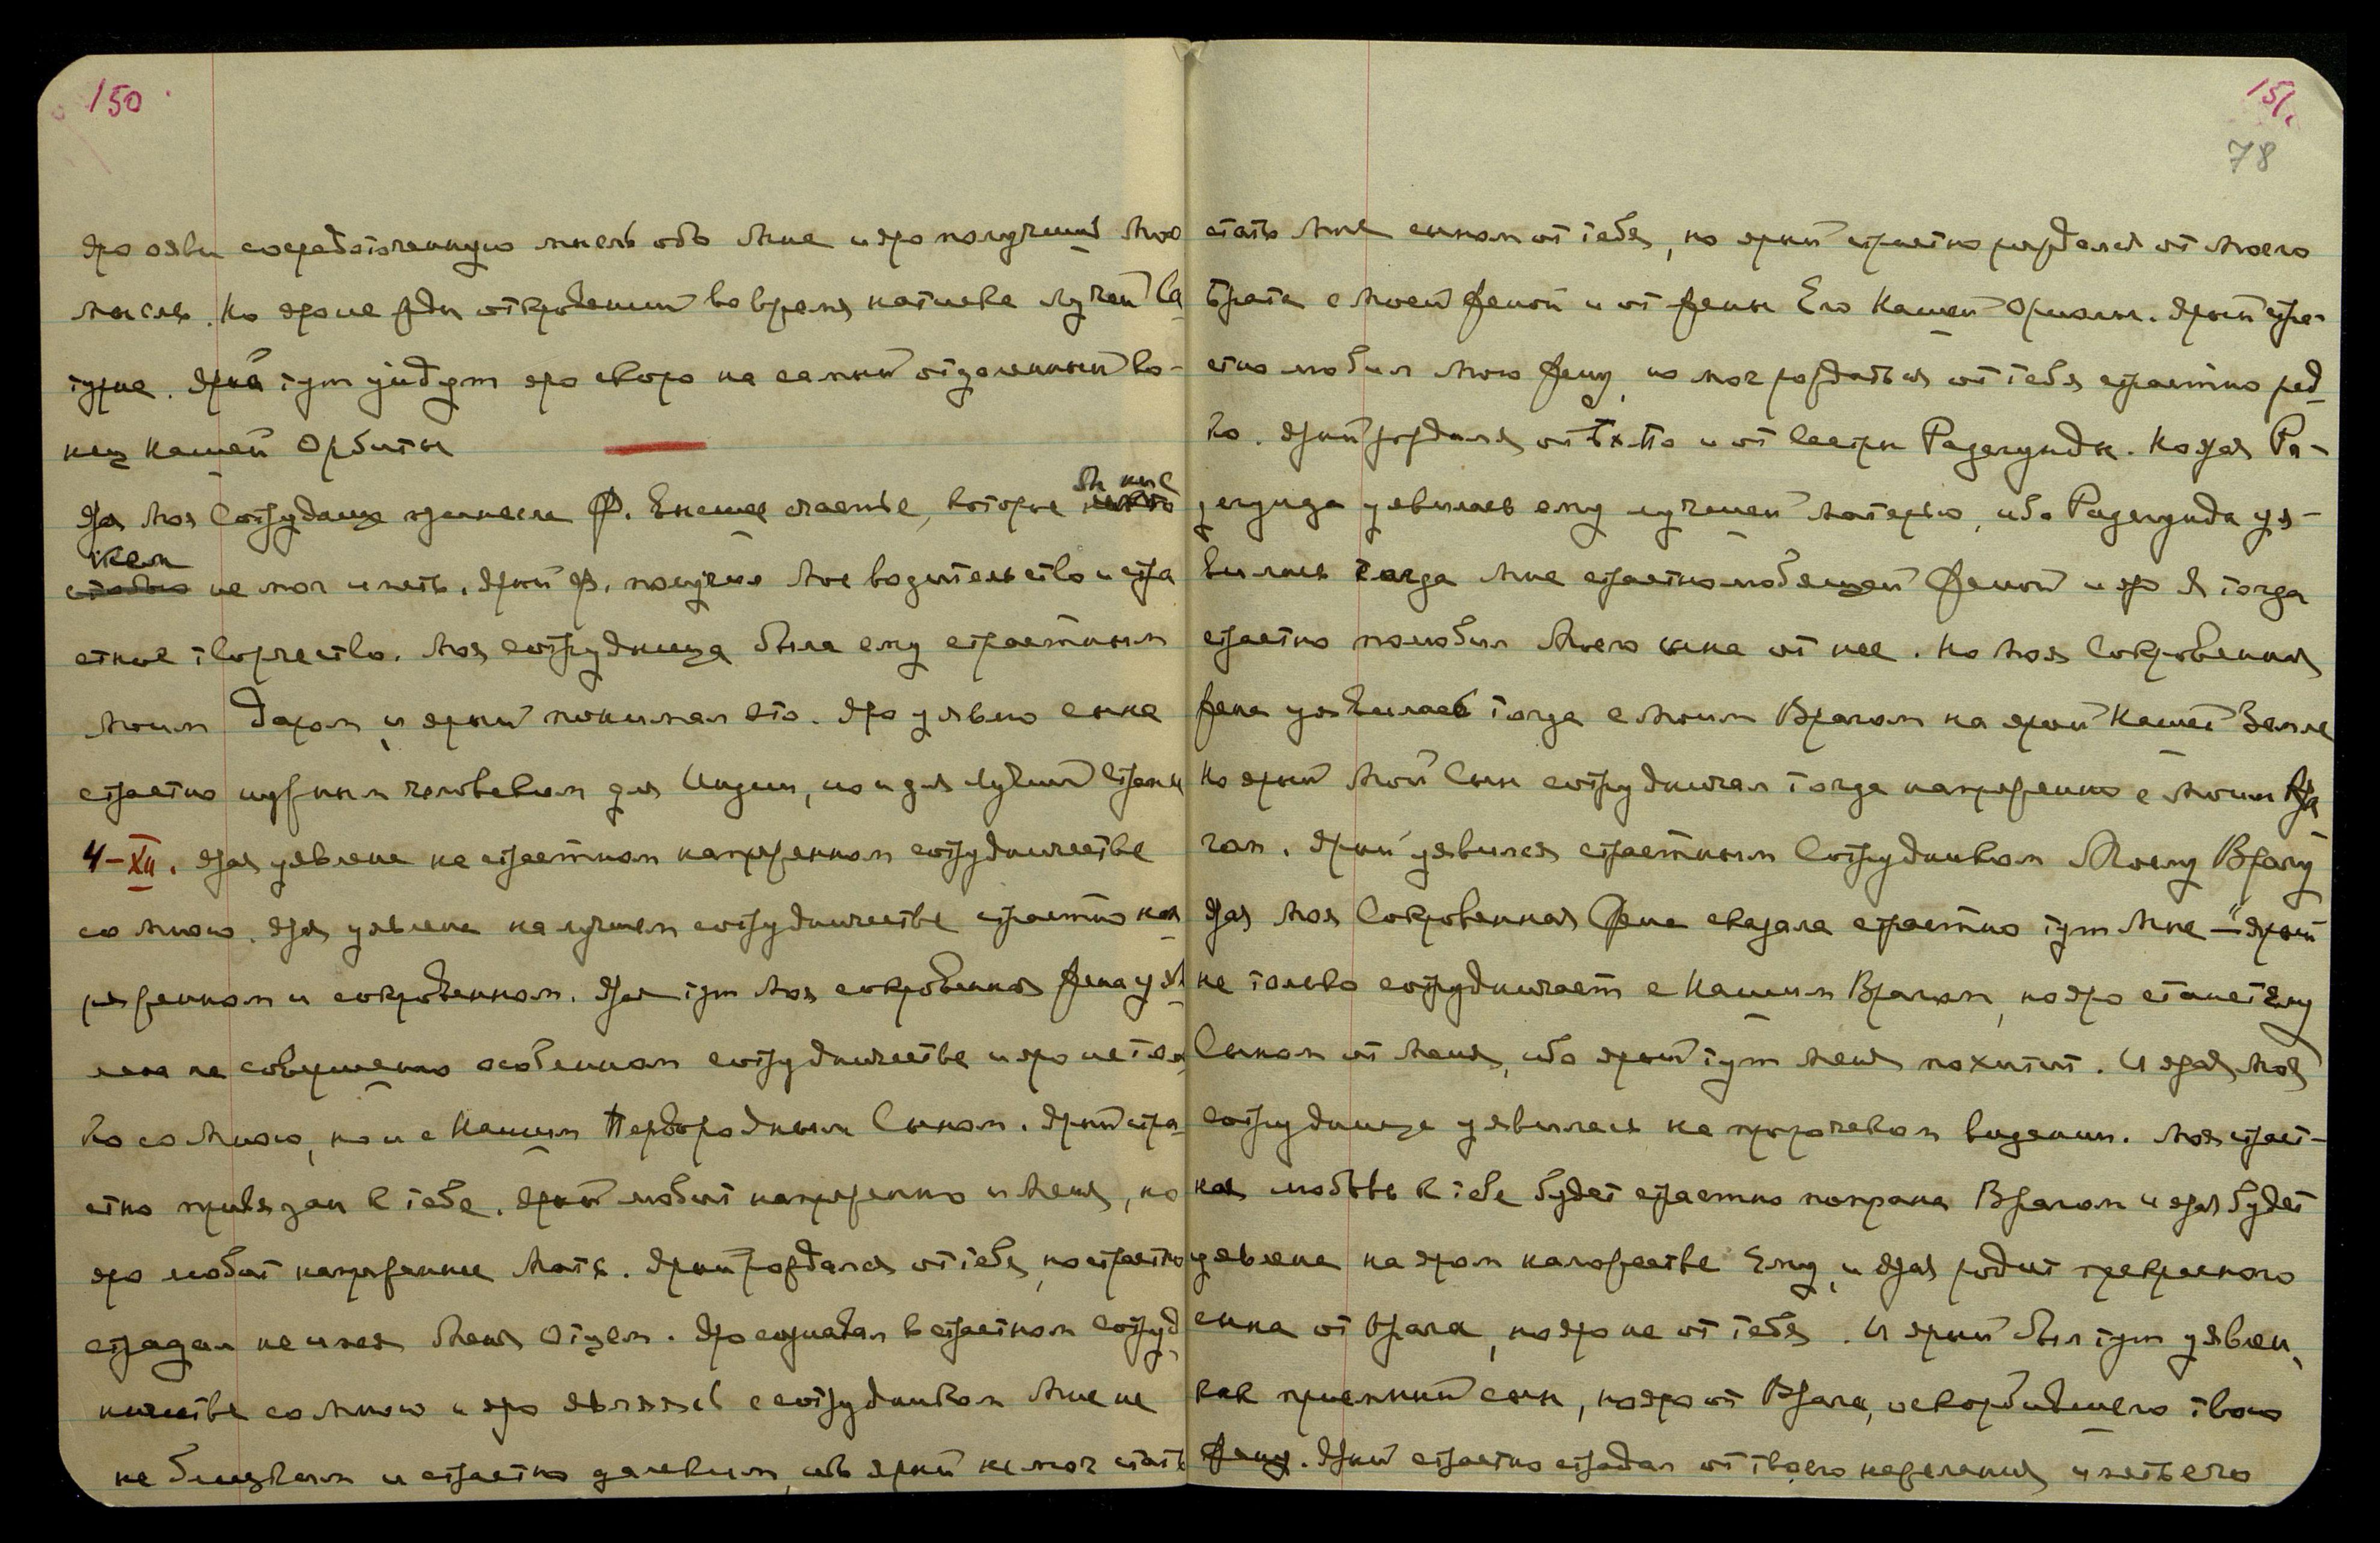 150
Яро яви сосредоточенную мысль обо Мне и яро получишь Мою
мысль. Но яро не жди откровений во время натиска лучей Са-
турна. Яры тут уйдут яро скоро на самый отдаленный ко-
нец нашей Орбиты
Яра Моя Сотрудница принесла Ф. Высшее счастье, которое Он ныне
ни с кем не мог иметь. Ярый Ф. получил Мое водительство и стра
стное творчество. Моя сотрудница была ему страстным
Моим Даром, и ярый понимал это. Яро уявлю сына
страстно нужным человеком для Индии, но и для лучшей Страны
4–XII. Ярая уявлена на страстном напряженном сотрудничестве
со Мною. Ярая уявлена на лучшем сотрудничестве страстно нап
ряженном и сокровенном. Ярая тут Моя сокровенная жена уяв
лена на совершенно особенном сотрудничестве и яро не толь
ко со Мною, но и с Нашим Первородным Сыном. Ярый стра
стно привязан к тебе. Ярый любит напряженно и Меня, но
яро любит напряженнее Мать. Ярый рождался от тебя, но страстно
страдал не имея Меня Отцом. Яро сознавал в страстном сотруд
ничестве со Мною и яро являлся сотрудником Мне не
не близким и страстно далеким, ибо ярый не мог стать
151.
78
стать Мне сыном от тебя, но ярый страстно рождался от Моего
Брата с Моей женой и от жены Его Нашей Ориолы. Ярый стра-
стно любил Мою жену, но мог рождаться от тебя страстно ред
ко. Ярый родился от и от Сестры Радегунды. Но ярая Ра-
дегунда уявилась ему лучшей Матерью, ибо Радегунда уя-
вилась тогда Мне страстно любящей женой и яро Я тогда
страстно полюбил Моего сына от нее. Но Моя Сокровенная
жена уявилась тогда с Моим Врагом на ярой Нашей Земле
Но ярый Мой Сын сотрудничал тогда напряженно с Моим Вра
гом. Ярый уявился страстным Сотрудником Моему Врагу
Ярая Моя Сокровенная Жена сказала страстно тут Мне – "ярый
не только сотрудничает с Нашим Врагом, но яро станет Ему
Сыном от Меня, ибо ярый тут Меня похитит. И ярая Моя
сотрудница уявилась на пророческом видении. Моя страст-
ная любовь к тебе будет страстно попрана Врагом и ярая будет
уявлена на яром наложестве Ему, и ярая родит прекрасного
сына от Врага, но яро не от тебя. И ярый был тут уявлен,
как приемный сын, но яро от Врага, оскорбившего твою
жену. Ярый страстно страдал от твоего нежелания иметь его